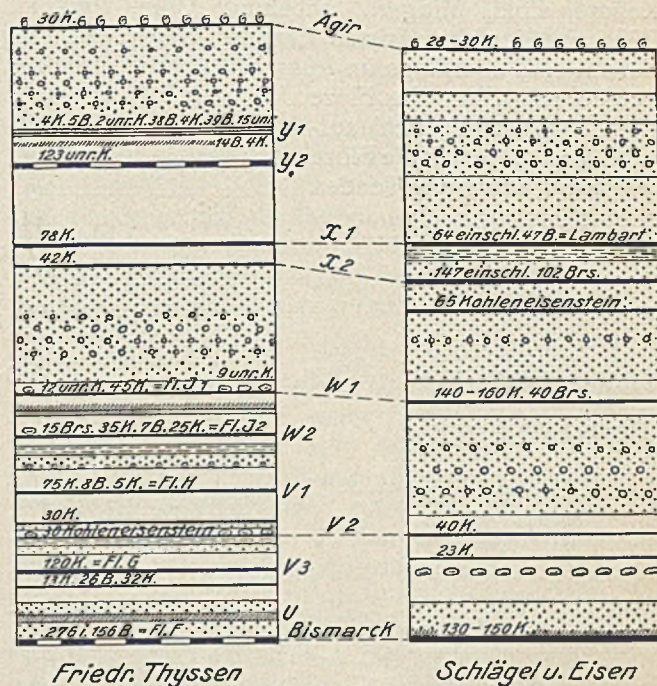 30 K.
Ägir
28-30 K.
4K. 5B. 2 unr. K. 38 B. 4K. 39 B. 15 unr.
y1
14 B. 4K.
123 unr. K.
y2
78 K.
X1
64 einschl. 47 B. = Lambart
42 K.
X2
147 einschl. 102 Brs.
65 Kohleneisenstein
9 unr. K.
12 unr. K. 45 K. = Fl. J1
W1
140-160 K. 40 Brs.
15 Brs. 35 K. 7 B. 25 K. = Fl. J2
W2
75 K. 8 B. 5 K. = Fl. H
V1
30 K.
40 K.
30 Kohleneisenstein
V2
23 K.
120 K. = Fl. G
V3
13 K. 26 B. 32 K.
U
276 i. 156 B. = Fl. F
Bismarck
130-150 K.
Friedr. Thyssen
Schlägel u. Eisen